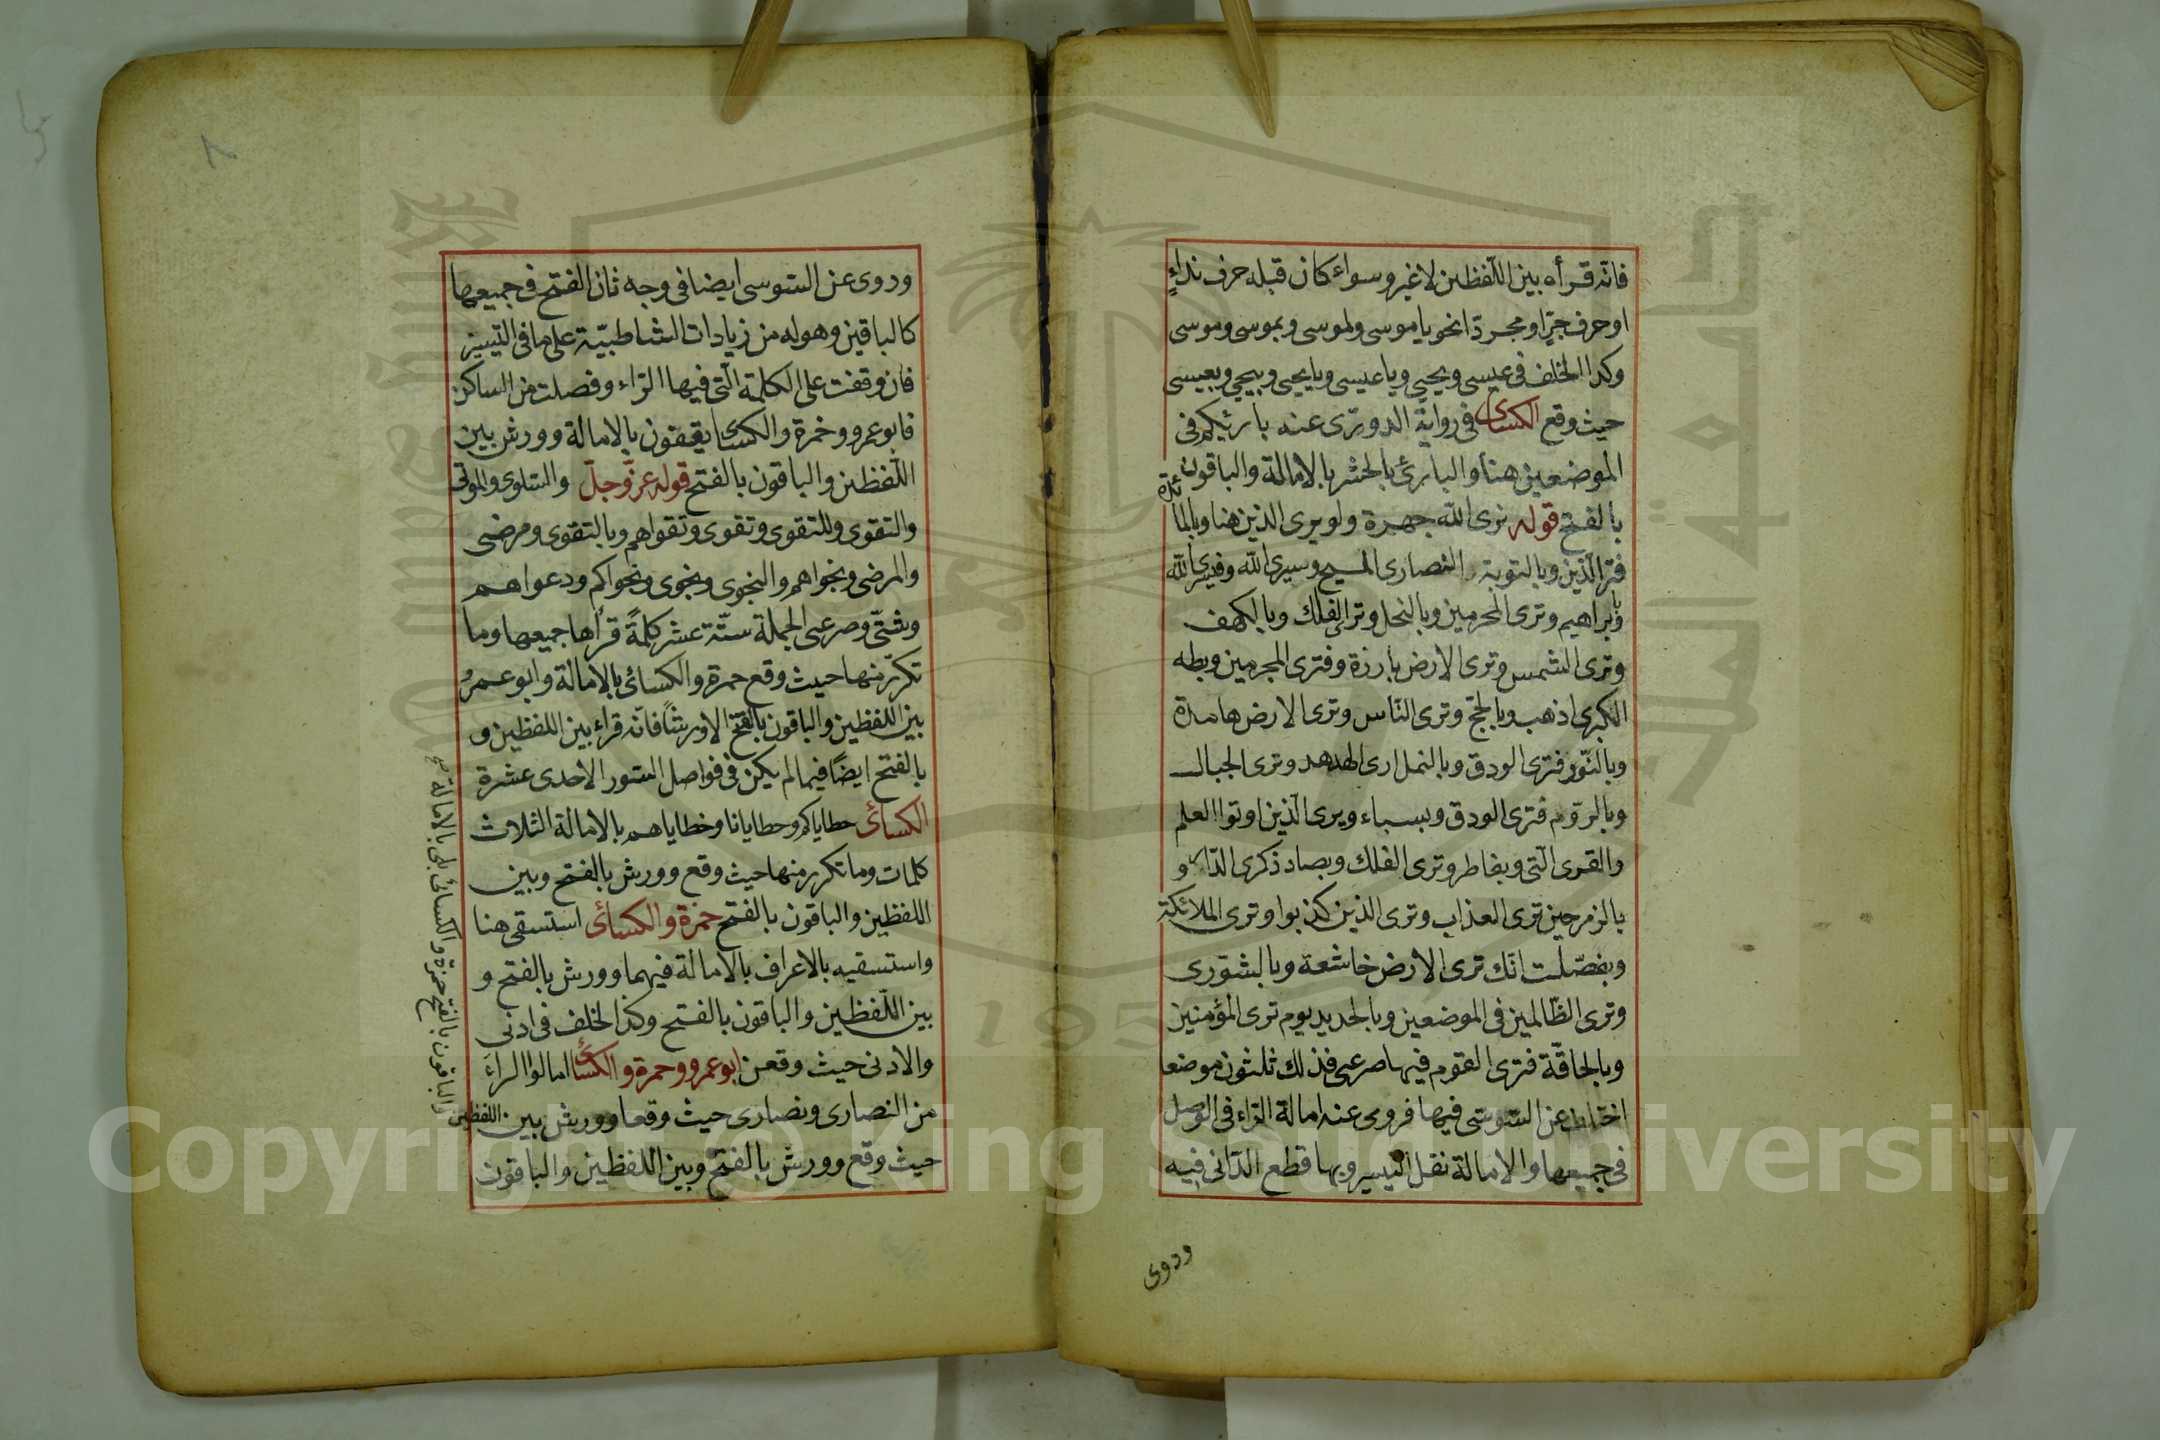 فانه قرأه بين اللفظين لا غير وسواء كان قبله حرف نداءٍ
او حرف جرٍّ او مجردًا نحو يا موسى ولموسى وبموسى وموسى
وكذا الخلف فى عيسى ويحيى ويا عيسى ويا يحيى وبيحيى وبعيسى
حيث وقع الكسائى فى رواية الدورى عنه بارئكم فى
الموضعين هنا والبارئ بالحشر بالامالة والباقون
بالفتح قوله نرى الله جهرة ولو يرى الذين هنا وبالمائدة
فترى الذين وبالتوبة النصارى المسيح وسيرى الله وفسيرى الله
وبابراهيم وترى المجرمين وبالنحل وترى الفلك وبالكهف
وترى الشمس وترى الارض بارزة وفترى المجرمين وبطه
الكبرى اذهب وبالحج وترى الناس وترى الارض هامدة
وبالنور فترى الودق وبالنمل ارى الهدهد وترى الجبال
وبالروم فترى الودق وبسباء ويرى الذين اوتوا العلم
والقرى التى وبفاطر وترى الفلك وبصاد ذكرى الدار و
بالزمر حين ترى العذاب وترى الذين كذبوا وترى الملائكة
وبفصلت انك ترى الارض خاشعة وبالشورى
وترى الظالمين فى الموضعين وبالحديد يوم ترى المؤمنين
وبالحاقة فترى القوم فيها صرعى فذلك ثلثون موضعا
اختلف عن السوسى فيها فروى عنه امالة الراء فى الوصل
فى جميعها والامالة نقل التيسير وبها قطع الدانى فيه
وروى
وروى عن السوسى ايضا فى وجه ثان الفتح فى جميعها
كالباقين وهو له من زيادات الشاطبيّة على ما فى التيسير
فان وقفت على الكلمة التى فيها الراء وفصلت من الساكن
فابو عمرو وحمزة والكسائى يقفون بالامالة وورش بين
اللفظين والباقون بالفتح قوله عزّ وجلّ والسلوى والموتى
والتقوى وللتقوى وتقوى وتقواهم وبالتقوى ومرضى
والمرضى ونجواهم والنجوى ونجوى ونجواكم ودعواهم
وشتّى وصرعى الجملة ستّة عشر كلمةً قرأها جميعها وما
تكرّر منها حيث وقع حمزة والكسائى بالامالة وابو عمرو
بين اللفظين والباقون بالفتح الا ورشًا فانّه قراء بين اللفظين و
بالفتح ايضًا فيما لم يكن فى فواصل السور الاحدى عشرة
الكسائى خطاياكم وخطايانا وخطاياهم بالامالة الثلاث
كلمات وما تكرر منها حيث وقع وورش بالفتح وبين
اللفظين والباقون بالفتح حمزة والكسائى استسقى هنا
واستسقيه بالاعراف بالامالة فيهما وورش بالفتح و
بين اللفظين والباقون بالفتح وكذا الخلف فى ادنى
والادنى حيث وقعن ابو عمرو وحمزة والكسائى امالوا الراءَ
من النصارى ونصارى حيث وقعا وورش بين اللفظين
والباقون بالفتح حمزة والكسائى بلى بالامالة صح
حيث وقع وورش بالفتح وبين اللفظين والباقون
٨
Copyright © King Saud University
1957